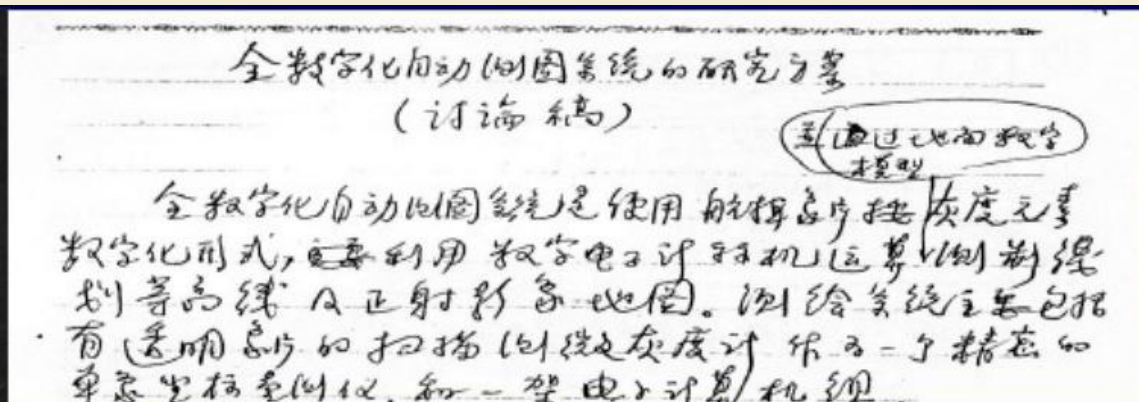 全数字化自动测图系统的研究方案
（讨论稿）
通过地面数字
模型
全数字化自动测图系统是使用航摄象片按灰度元素
数字化形式，主要利用数字电子计算机运算测制线
划等高线及正射影象地图。测绘系统主要包括
有透明象片的扫描测微灰度计作为一个精密的
单象坐标量测仪，和一架电子计算机组